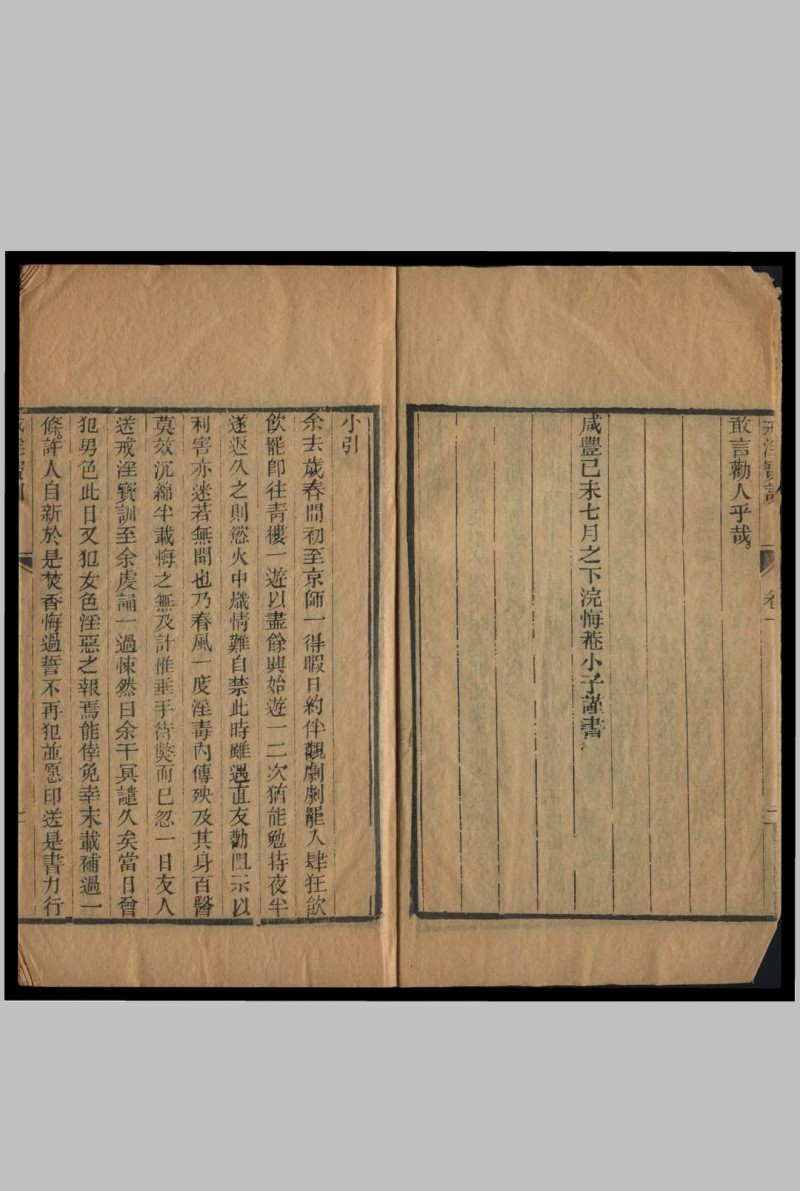 戒淫寶訓
卷一
敢言勸人乎哉
咸豐己未七月之下浣悔菴小子謹書
小引
余去歲春間初至京師一得暇日約伴觀劇劇罷入肆狂飲
飲罷即往青樓一遊以盡餘興始遊一二次猶能勉持夜半
遂返久之則慾火中熾情難自禁此時雖遇直友勸阻示以
利害亦迷若無聞也乃春風一度淫毒內傳殃及其身百醫
莫效沉綿半載悔之無及計惟垂手待斃而已忽一日友人
送戒淫寶訓至余處誦一過悚然曰余干冥譴久矣當日曾
犯男色此日又犯女色淫惡之報焉能倖免幸末載補過一
條許人自新於是焚香悔過誓不再犯並愿印送是書力行